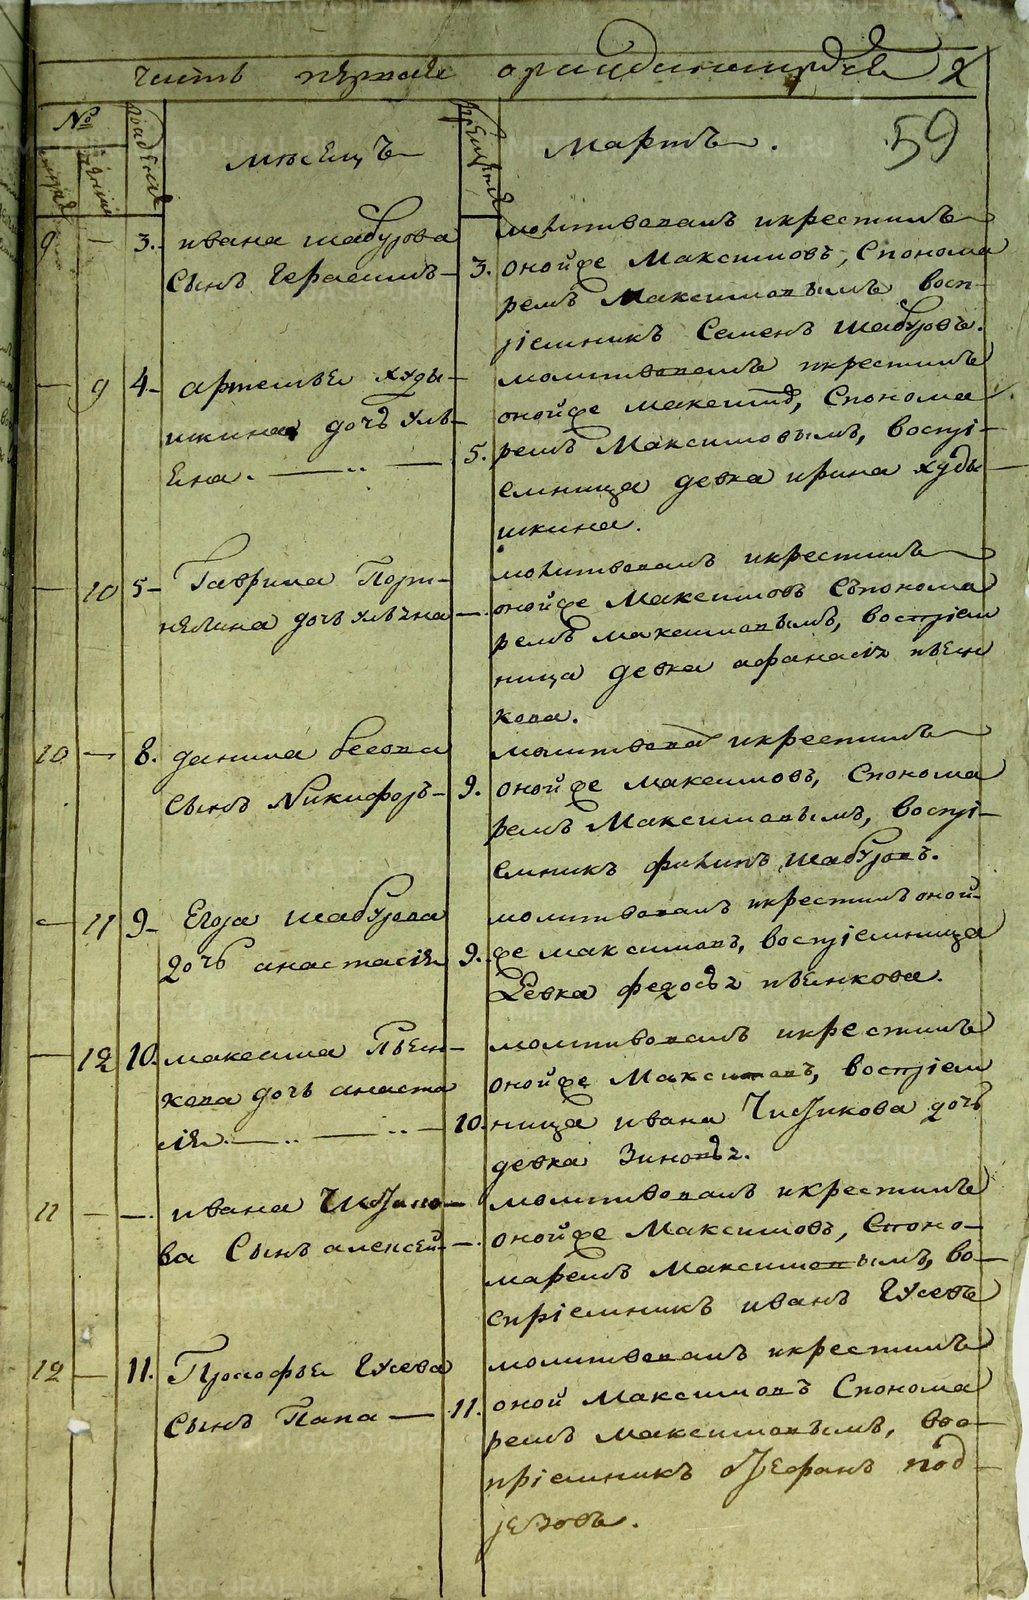 часть первая о раждающихся 2
59
№
рождения
месецъ
крещения
мартъ.
9 — 3. ивана шабурова
сынъ Герасимъ — 3.
молитвовалъ икрестилъ
онойже Максимовъ, Спонома
ремъ Максимовымъ восп-
ріемникъ Семенъ шабуровъ.
— 9 4 — артемья худы-
шкина дочь уль-
яна. — 5.
молитвовалъ икрестилъ
онойже максимов, Спонома
ремъ Максимовымъ, воспрі-
емница девка ирина худы-
шкина.
— 10 5 — Гаврила Порт-
нягина дочь ульяна —
молитвовалъ икрестилъ
онойже Максимовъ Съпонома
ремъ максимовымъ, воспріем
ница девка афанасія пьян
кова.
10 — 8. данила бесова
сынъ Никифоръ — 9.
молитвовал икрестилъ
онойже максимовъ, Спонома
ремъ Максимовымъ, воспрі-
емникъ филипъ шабуровъ.
— 11 9 — Егора шабурова
дочь анастасія 9.
молитвовалъ икрестилъ оной-
же максимовъ, воспріемница
Девка федосья пьянкова.
— 12 10. максима Пьян-
кова дочь анаста
сія. — 10.
молитвовалъ икрестилъ
онойже Максимовъ, воспріем
ница ивана Чирикова дочь
девка Зиновья.
11 — — ивана
ва Сынъ алексей —
молитвовалъ икрестилъ
онойже Максимовъ, Споно-
маремъ Максимовымъ, во-
спріемникъ иванъ Гусевъ
12 — 11. Прокофья Гусева
Сынъ Папа — 11.
молитвовалъ икрестилъ
оной Максимовъ Спонома
ремъ Максимовымъ, вос-
пріемникъ под-
резовъ.